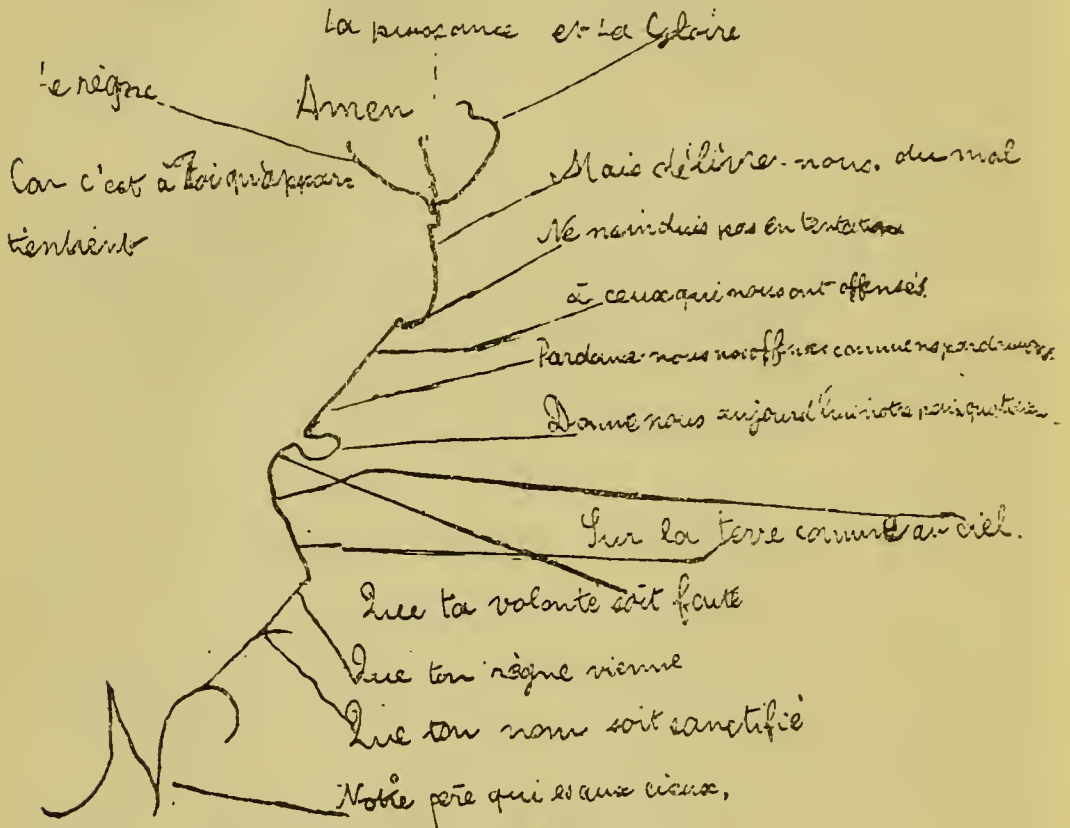 La puissance et La Gloire
Le règne
Amen
Car c'est à Toi qu'appar-
tiennent
Mais délivre-nous. du mal
Ne nous induis pas en tentation
à ceux qui nous ont offensés.
Pardonne-nous nos offenses comme ns pardonnons
Donne nous aujourd'hui notre pain quotidien
Sur la terre comme au ciel.
Que ta volonté soit faite
Que ton règne vienne
Que ton nom soit sanctifié
Notre père qui es aux cieux,